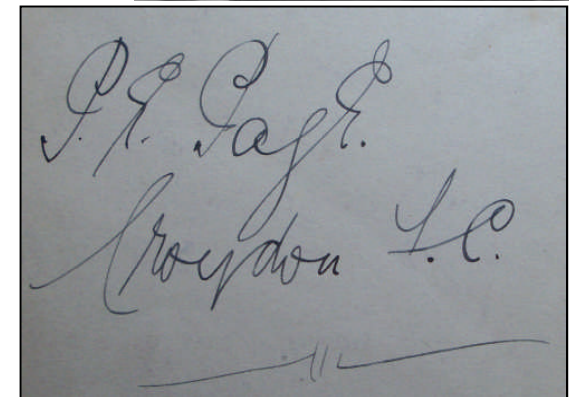 P. E. PagE.
Croydon